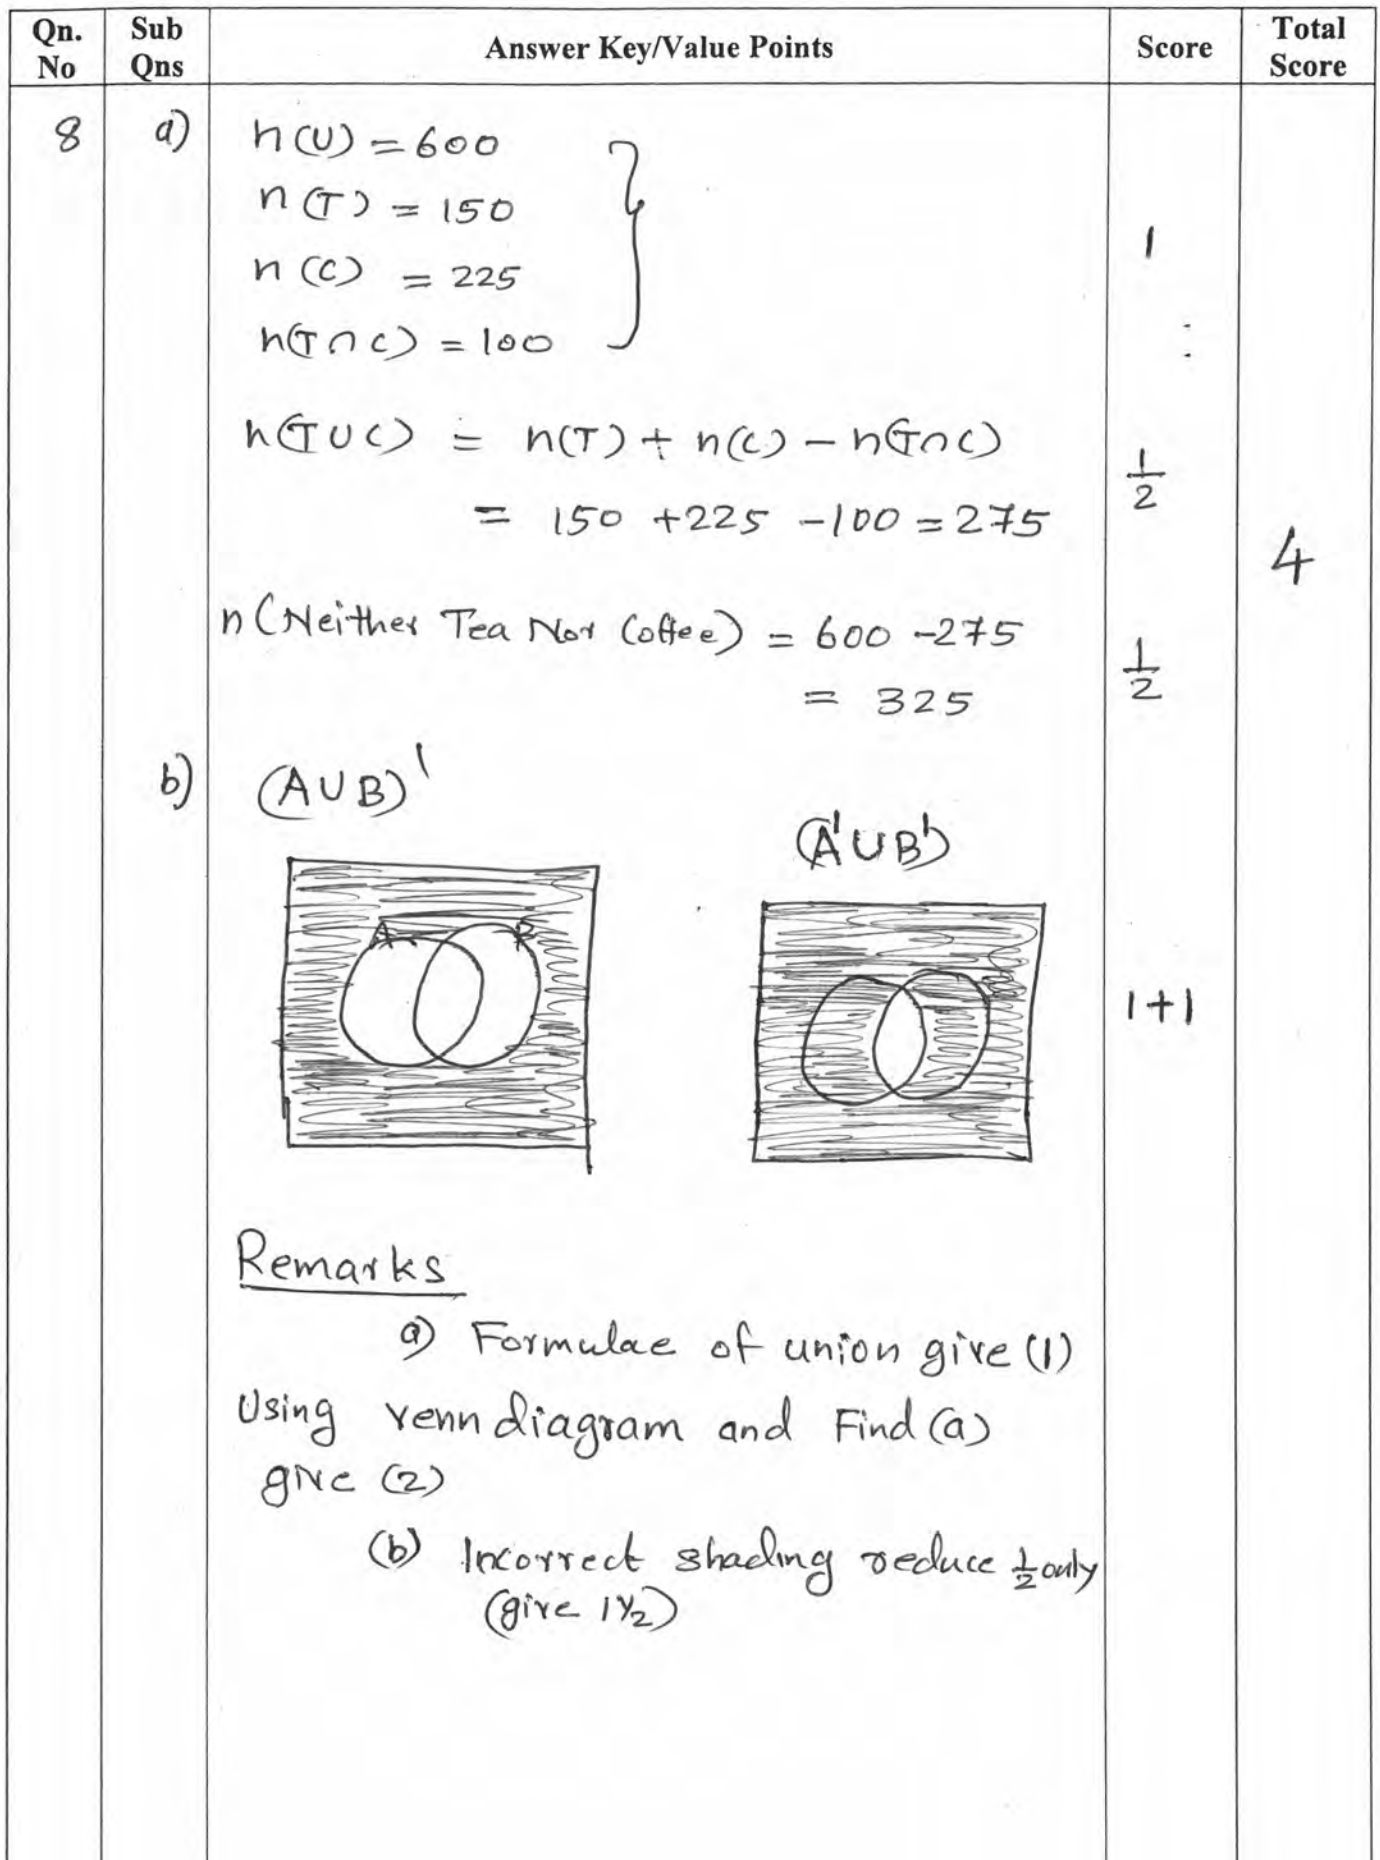 Qn. No | Sub Qns | Answer Key/Value Points | Score | Total Score
8 a) n(U) = 600
n(T) = 150
n(C) = 225
1
n(T∩C) = 100
n(T∪C) = n(T) + n(C) - n(T∩C)
1/2
= 150 + 225 - 100 = 275
4
n(Neither Tea Nor Coffee) = 600 - 275
1/2
= 325
b) (A∪B)'
(A'∪B')
A B
1+1
Remarks
a) Formulae of union give (1)
Using venn diagram and Find (a)
give (2)
(b) Incorrect shading reduce 1/2 only
(give 1 1/2)